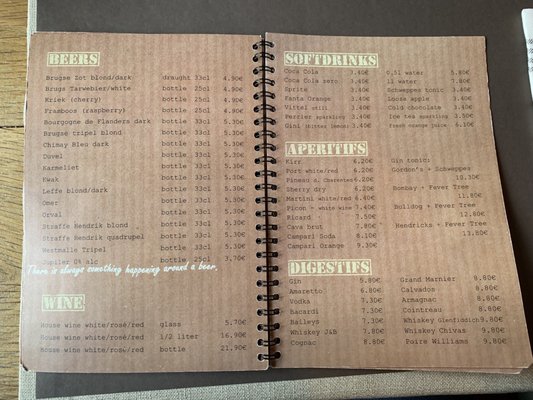 BEERS
Brugse Zot blond/dark draught 33cl 4.90€
Brugs Tarwebier/white bottle 25cl 4.90€
Kriek (cherry) bottle 25cl 4.90€
Framboos (raspberry) bottle 25cl 4.90€
Bourgogne de Flanders dark bottle 33cl 5.30€
Brugse tripel blond bottle 33cl 5.30€
Chimay Bleu dark bottle 33cl 5.30€
Duvel bottle 33cl 5.30€
Karmeliet bottle 33cl 5.30€
Kwak bottle 33cl 5.30€
Leffe blond/dark bottle 33cl 5.30€
Omer bottle 33cl 5.30€
Orval bottle 33cl 5.30€
Straffe Hendrik blond bottle 33cl 5.30€
Straffe Hendrik quadrupel bottle 33cl 5.30€
Westmalle Tripel bottle 33cl 5.30€
Jupiler 0% alc bottle 25cl 3.70€
There is always something happening around a beer.
WINE
House wine white/rosé/red glass 5.70€
House wine white/rosé/red 1/2 liter 16.90€
House wine white/rosé/red bottle 21.90€
SOFTDRINKS
Coca Cola 3.40€ 0,5l water 5.80€
Coca Cola zero 3.40€ 1l water 7.80€
Sprite 3.40€ Schweppes tonic 3.40€
Fanta Orange 3.40€ Looza apple 3.40€
Vittel still 3.40€ Cold chocolate 3.40€
Perrier sparkling 3.40€ Ice tea sparkling 3.50€
Gini (bitter lemon) 3.40€ fresh orange juice 6.10€
APERITIFS
Kirr 6.20€ Gin tonic:
Port white/red 6.20€ Gordon's + Schweppes
Pineau d. Charentes 6.20€ 10.30€
Sherry dry 6.20€ Bombay + Fever Tree
Martini white/red 6.40€ 11.80€
Picon + white wine 7.40€ Bulldog + Fever Tree
Ricard 7.50€ 12.80€
Cava brut 7.80€ Hendricks + Fever Tree
Campari Soda 8.10€ 13.80€
Campari Orange 9.30€
DIGESTIFS
Gin 5.80€ Grand Marnier 8.80€
Amaretto 6.80€ Calvados 8.80€
Vodka 7.30€ Armagnac 8.80€
Bacardi 7.30€ Cointreau 8.80€
Baileys 7.30€ Whiskey Glenfiddich 9.80€
Whiskey J&B 7.80€ Whiskey Chivas 9.80€
Cognac 8.80€ Poire Williams 9.80€